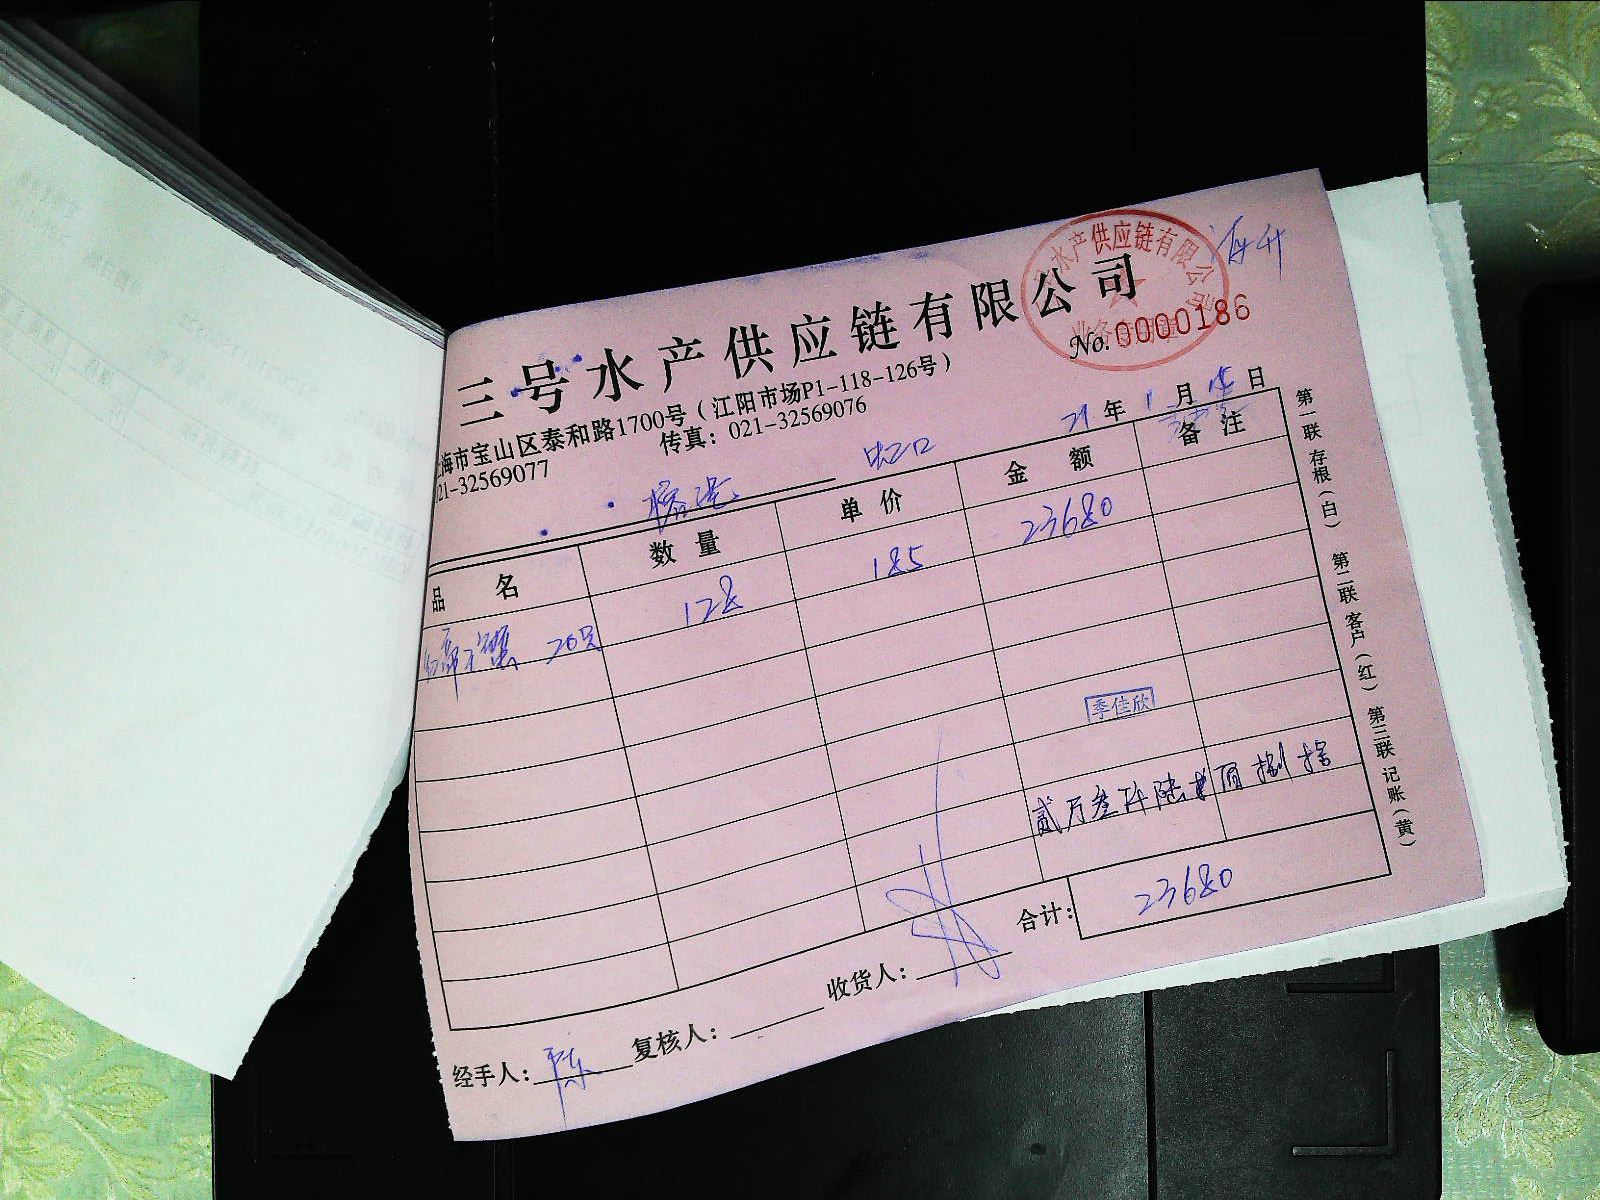 水产供应链有限公司
三号水产供应链有限公司
No. 0000186
海市宝山区泰和路1700号（江阳市场P1-118-126号）
021-32569077 传真：021-32569076
虹口 21年1月15日
品名 数量 单价 金额 备注
20只 128 185 23680
季佳欣
贰万叁仟陆佰捌拾
合计： 23680
经手人： 陈 复核人： 收货人：
第一联存根（白） 第二联客户（红） 第三联记账（黄）